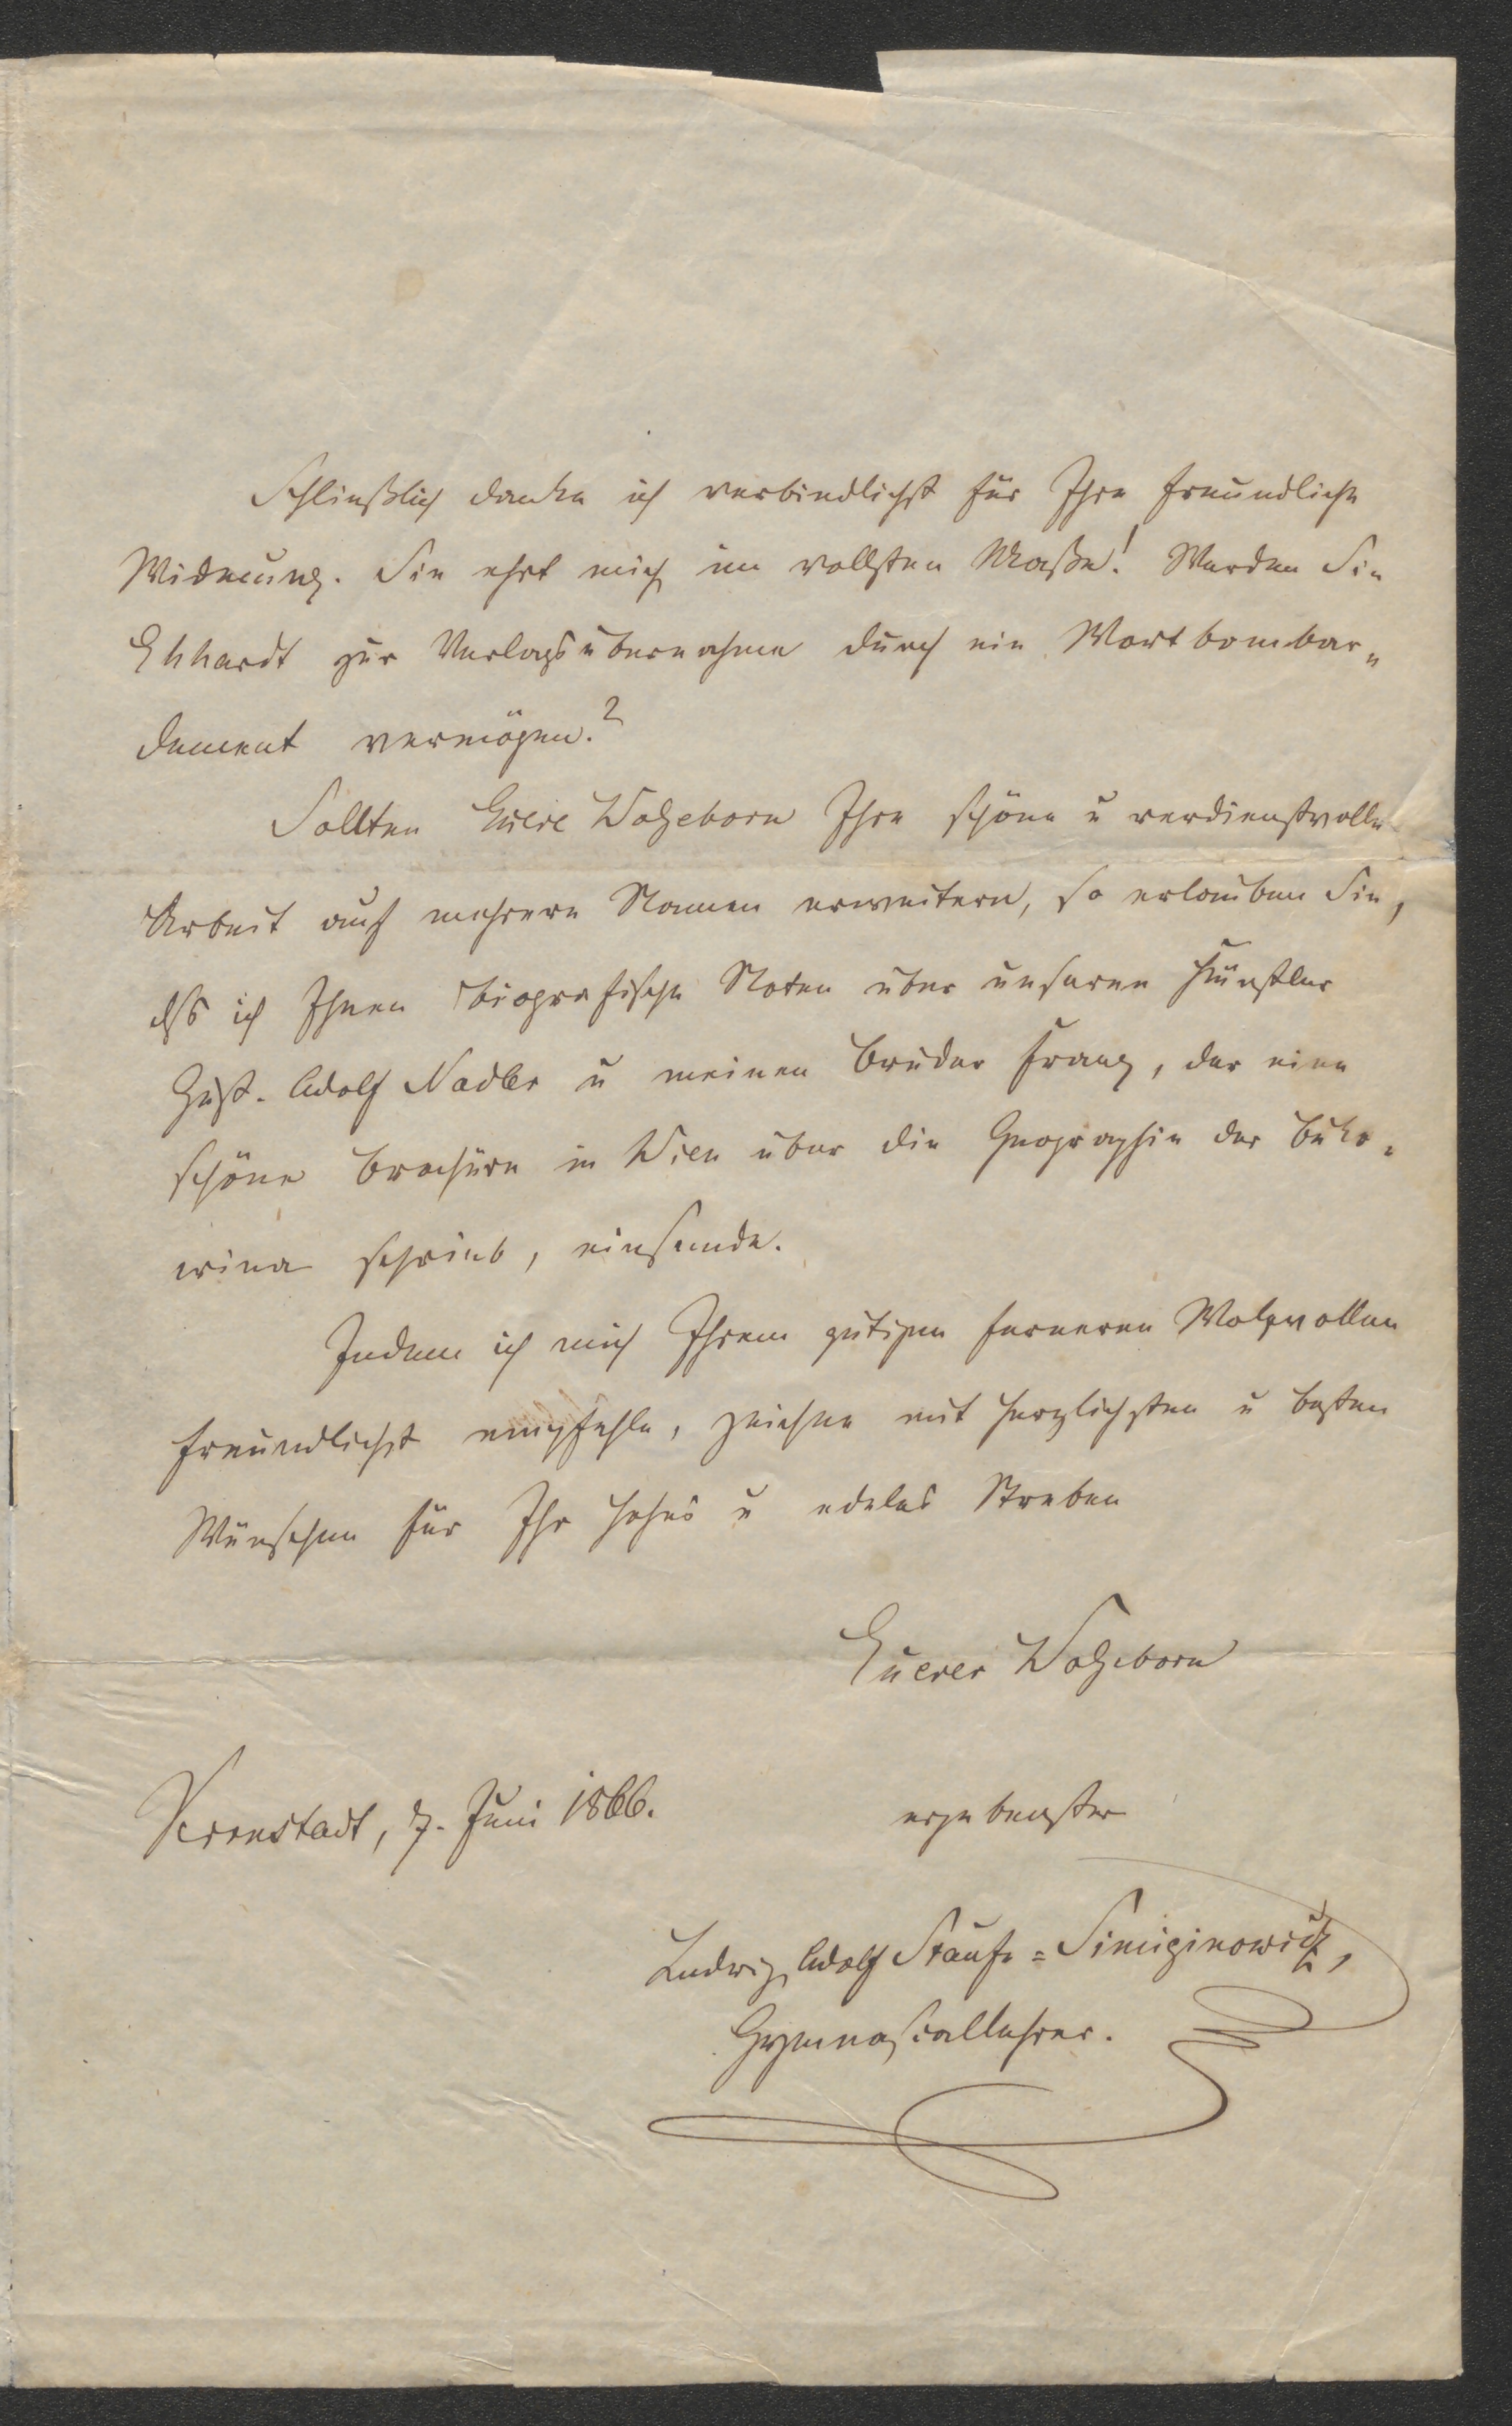 Schließlich danke ich verbindlichst für Ihre freundliche
Widmung. Sie ehrt mich im vollsten Maße! Werden Sie
Ekhardt zur Verlagsübernahme durch ein Wortbombar-
dement vermögen?
Sollten Euere Wolgeborn Ihre schöne u verdienstvolle
Arbeit auf mehrere Namen erweitern, so erlauben Sie,
dß ich Ihnen biografische Noten über unseren Künstler
Gust. Adolf Nadler u meinen Bruder Franz, der eine
schöne Brochüre in Wien über die Geographie der Buko-
wina schrieb, einsende.
Indem ich mich Ihrem gütigen ferneren Wolwollen
freundlichst empfehle, zeichne mit herzlichsten u besten
Wünschen für Ihr hohes u edeles Streben
Euerer Wolgeborn
Kronstadt, 7. Juni 1866.
ergebenster
Ludwig Adolf Staufe=Simiginowicz,
Gymnasiallehrer.